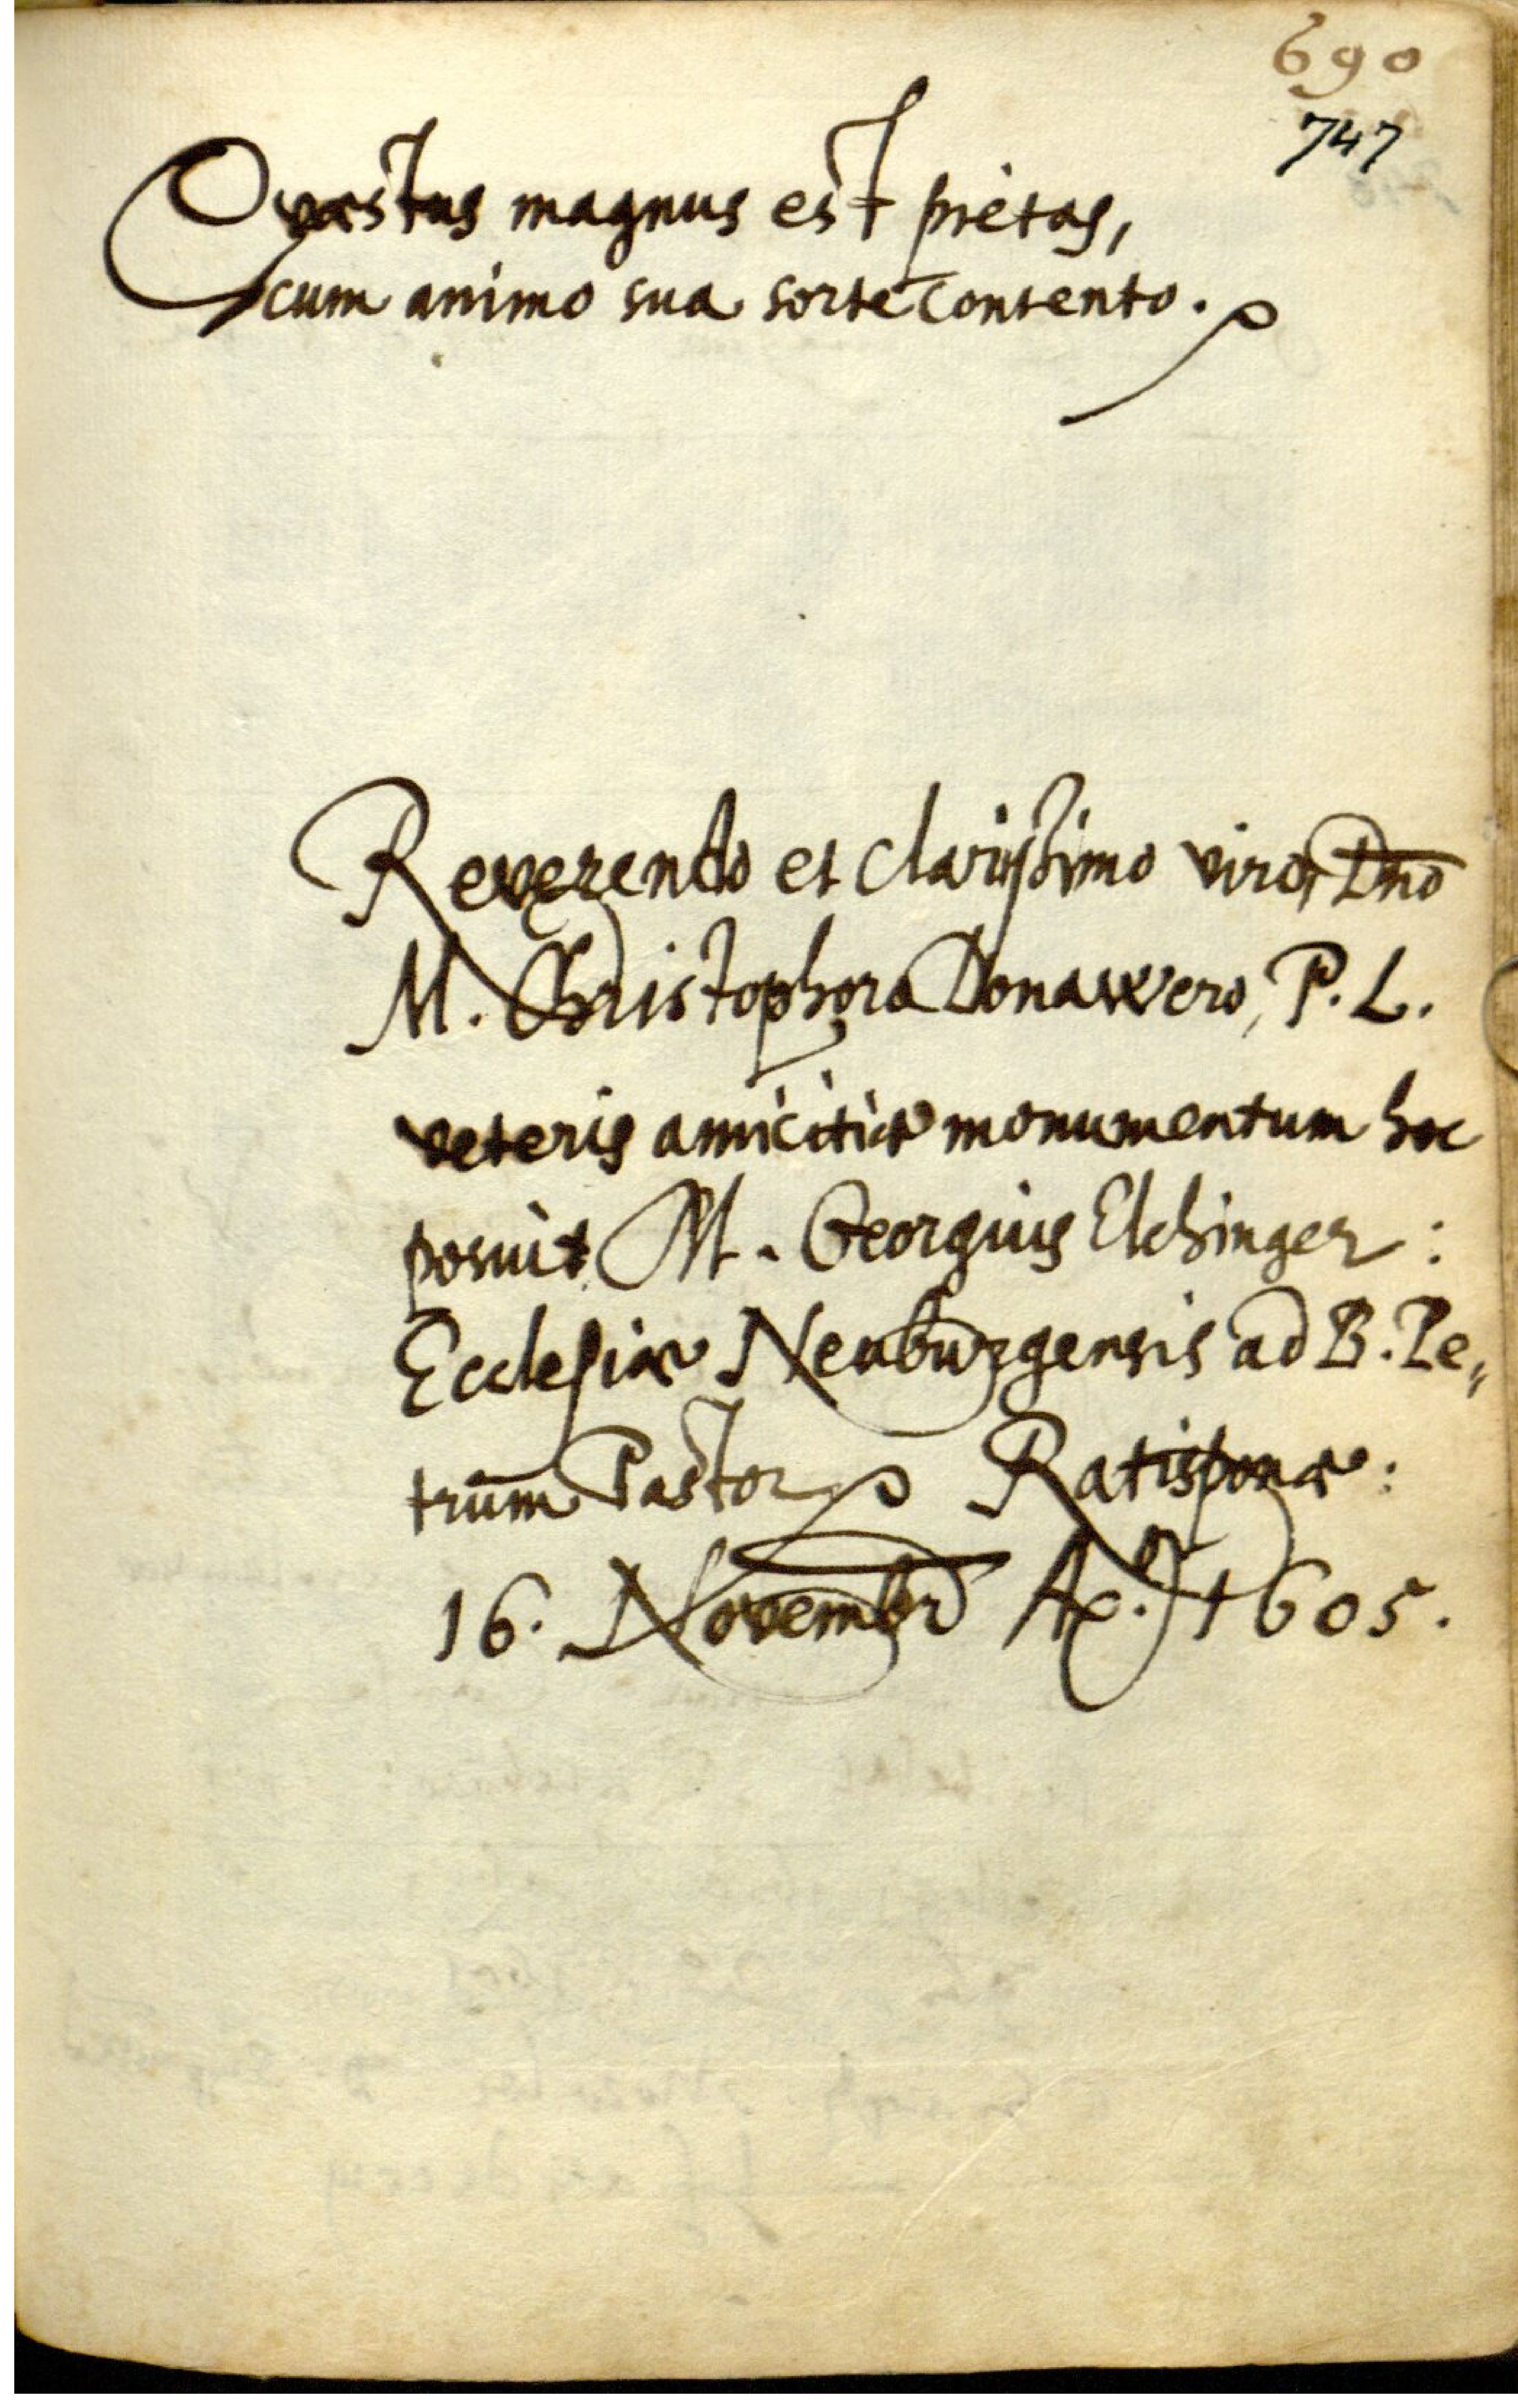 690
747
Quæstus magnus est pietas,
cum animo sua sorte contento.
Reverendo et clarißimo viro, Dno
M. Christophoro Donawero, P. L.
veteris amicitiæ monumentum hoc
posuit M. Georgius Elchinger:
Ecclesiæ Neuburgensis ad B. Pe„
trum Pastor Ratisponæ:
16. Novembr Aõ. 1605.